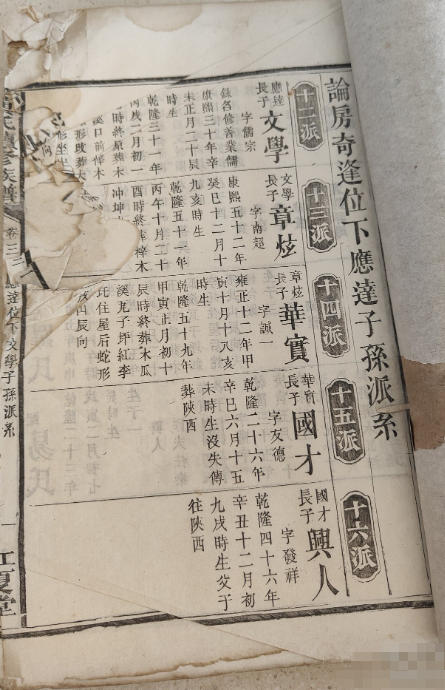 論房奇逢位下應達子孫派系
十二派
應達
長子
文學
字儒宗
録名修善業儒
康熙三十年辛
未正月二十辰
時生
乾隆三十一年
丙戌二月初一
十三派
文學
長子
章炫
字南超
康熙五十二年
癸巳十二月十
九亥時生
乾隆五十一年
丙午十月二十
酉時終葬梓木
十四派
章炫
長子
華實
字誠一
雍正十二年甲
寅十月十八亥
時生
乾隆五十九年
甲寅正月初十
辰時終葬木瓜
溪九子坪紅李
比住屋后蛇形
十五派
華實
長子
國才
字友德
乾隆二十六年
辛巳六月十五
未時生沒失傳
葬陝西
十六派
國才
長子
興人
字發祥
乾隆四十六年
辛丑十二月初
九戌時生父于
往陝西
應達位下文學子孫派系
江夏堂